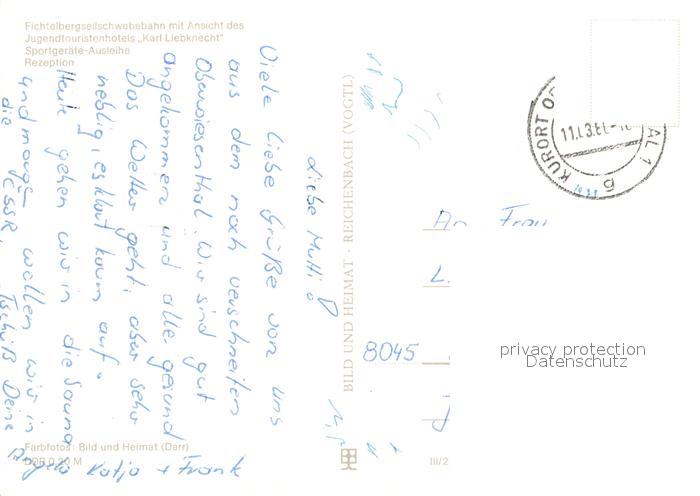 Fichtelbergseilschwebebahn mit Ansicht des
Jugendtouristenhotels „Karl Liebknecht"
Sportgeräte-Ausleihe
Rezeption
Liebe Mutti!
Viele liebe Grüße von uns
aus dem noch verschneiten
Oberwiesenthal. Wir sind gut
angekommen und alle gesund
Das Wetter geht, aber sehr
neblig, es klart kaum auf.
Heute gehen wir in die Sauna
und morgen wollen wir in
die CSSR. Tschüß Deine
Angela Katja + Frank
BILD UND HEIMAT · REICHENBACH (VOGTL)
KURORT O
11.03.8
AL 1
An Frau
L.
8045
privacy protection
Datenschutz
Farbfotos: Bild und Heimat (Darr)
DDR 0,20 M
III/2